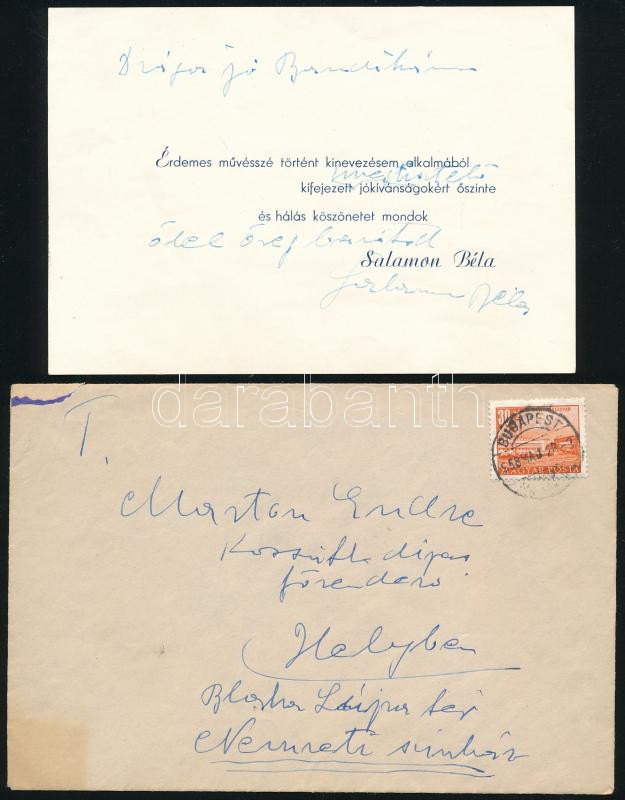 Drága jó Bandikám
Érdemes művésszé történt kinevezésem alkalmából
kifejezett jókívánságokért őszinte
és hálás köszönetet mondok
ölel öreg barátod
Salamon Béla
Salamon Béla
darabanth
T.
30
BUDAPEST
MAGYAR POSTA
Marton Endre
Kossuth díjas
főrendező
Helyben
Blaha Lujza tér
Nemzeti szinház